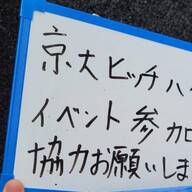 京大ヒッチハ
イベント参加
協力お願いしま